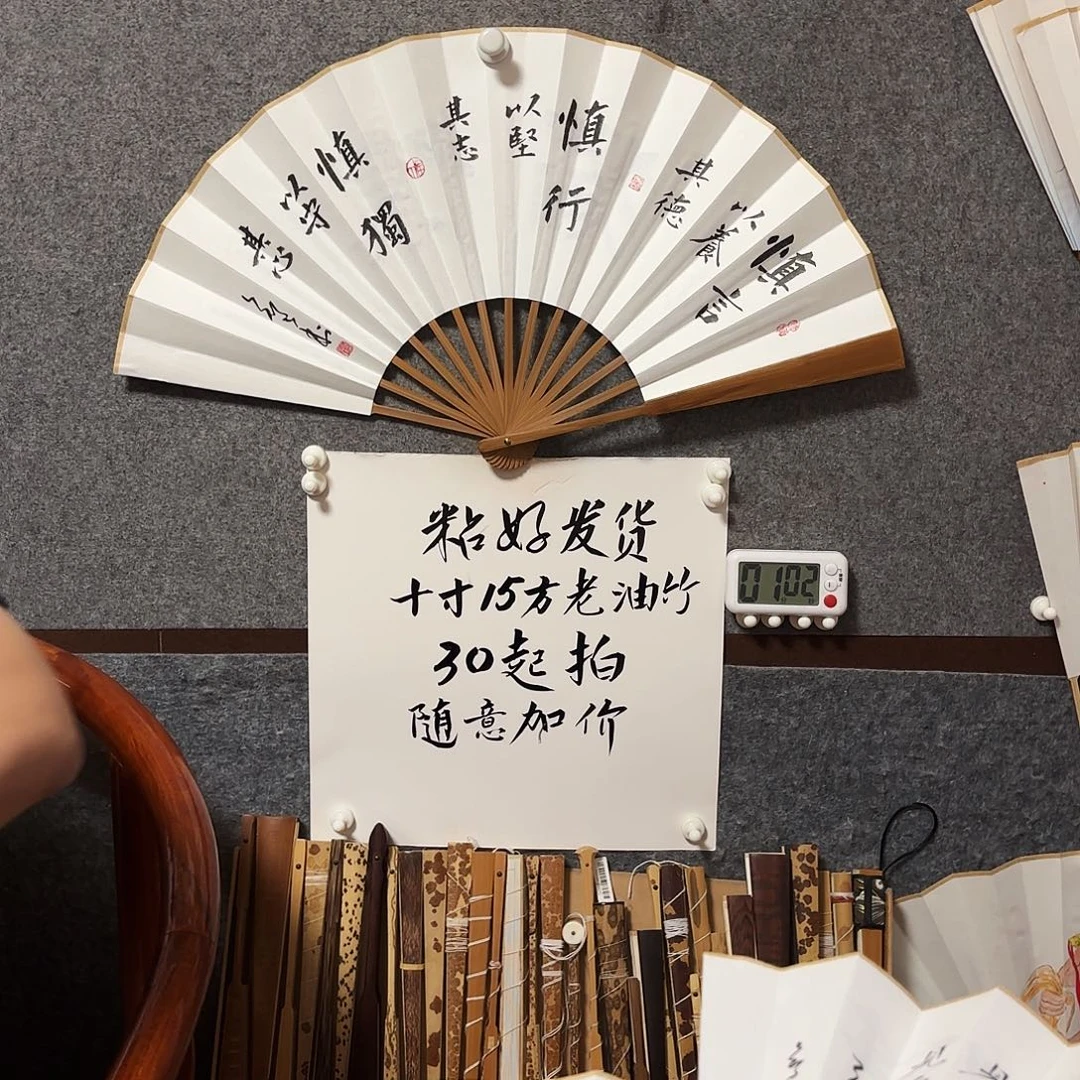 慎言
以養
其德
慎行
以堅
其志
慎獨
以守
其心
粘好发货
十寸15方老油竹
30起拍
随意加价
0102